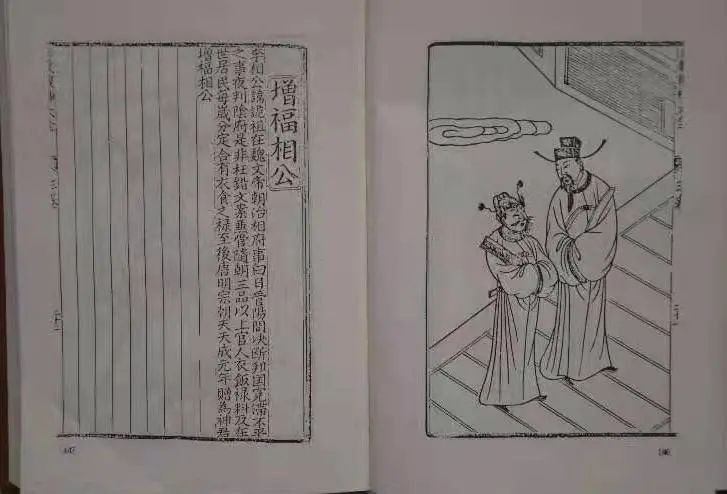 增福相公
李相公諱詭祖在魏文帝朝治相府事白日管陽間决断邦国冤滯不平
之事夜判陰府是非枉錯文案兼管隨朝三品以上官人衣飯禄料及在
世居民每歲分定合有衣食之禄至後唐明宗朝天天成元年贈為神君
增福相公